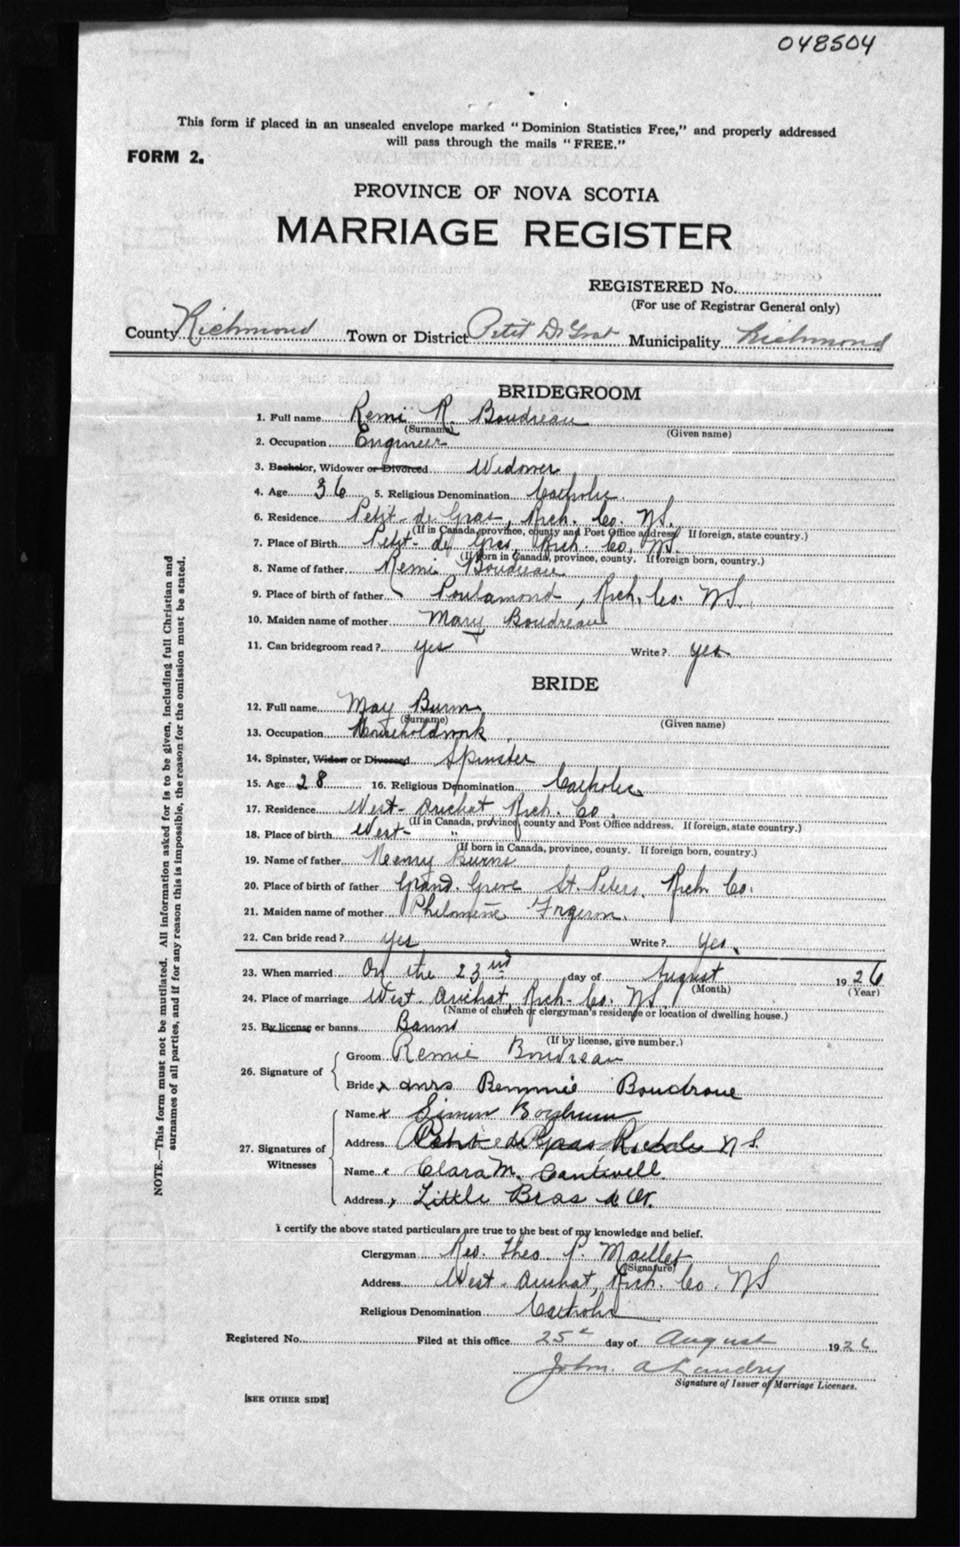 048504
This form if placed in an unsealed envelope marked "Dominion Statistics Free," and properly addressed
will pass through the mails "FREE."
FORM 2.
PROVINCE OF NOVA SCOTIA
MARRIAGE REGISTER
REGISTERED No.
(For use of Registrar General only)
County Richmond Town or District Petit De Grat Municipality Richmond
BRIDEGROOM
1. Full name Remi R. Boudreau
(Surname) (Given name)
2. Occupation Engineer
3. Bachelor, Widower or Divorced Widower
4. Age 36 5. Religious Denomination Catholic
6. Residence Petit-de Gras, Rich. Co. N.S.
(If in Canada, province, county and Post Office address. If foreign, state country.)
7. Place of Birth Petit-de Gras, Rich. Co. N.S.
(If born in Canada, province, county. If foreign born, country.)
8. Name of father Remi Boudreau
9. Place of birth of father Poulamond, Rich. Co. N.S.
10. Maiden name of mother Mary Boudreau
11. Can bridegroom read? yes Write? yes
BRIDE
12. Full name May Burns
(Surname) (Given name)
13. Occupation Householdwork
14. Spinster, Widow or Divorced Spinster
15. Age 28 16. Religious Denomination Catholic
17. Residence West-Arichat, Rich. Co.
(If in Canada, province, county and Post Office address. If foreign, state country.)
18. Place of birth West- "
(If born in Canada, province, county. If foreign born, country.)
19. Name of father Henry Burns
20. Place of birth of father Grand. Greve St. Peters, Rich. Co.
21. Maiden name of mother Philomene Forgeron.
22. Can bride read? yes Write? yes.
23. When married On the 23rd day of August 1926
(Month) (Year)
24. Place of marriage West-Arichat, Rich. Co. N.S.
(Name of church or clergyman's residence or location of dwelling house.)
25. By license or banns Banns
(If by license, give number.)
26. Signature of
Groom Remie Boudreau
Bride x Mrs Bemmie Boudroue
27. Signatures of Witnesses
Name x Simon
Address de Gras N S.
Name x Clara M. Cantwell
Address x Little Bras
I certify the above stated particulars are true to the best of my knowledge and belief.
Clergyman Rev. Theo. P. Maillet
(Signature)
Address West-Arichat, Rich. Co. N S
Religious Denomination Catholic
Registered No. Filed at this office 25 day of August 1926
John. A Landry
Signature of Issuer of Marriage Licenses.
[SEE OTHER SIDE]
NOTE.—This form must not be mutilated. All information asked for is to be given, including full Christian and
surnames of all parties, and if for any reason this is impossible, the reason for the omission must be stated.